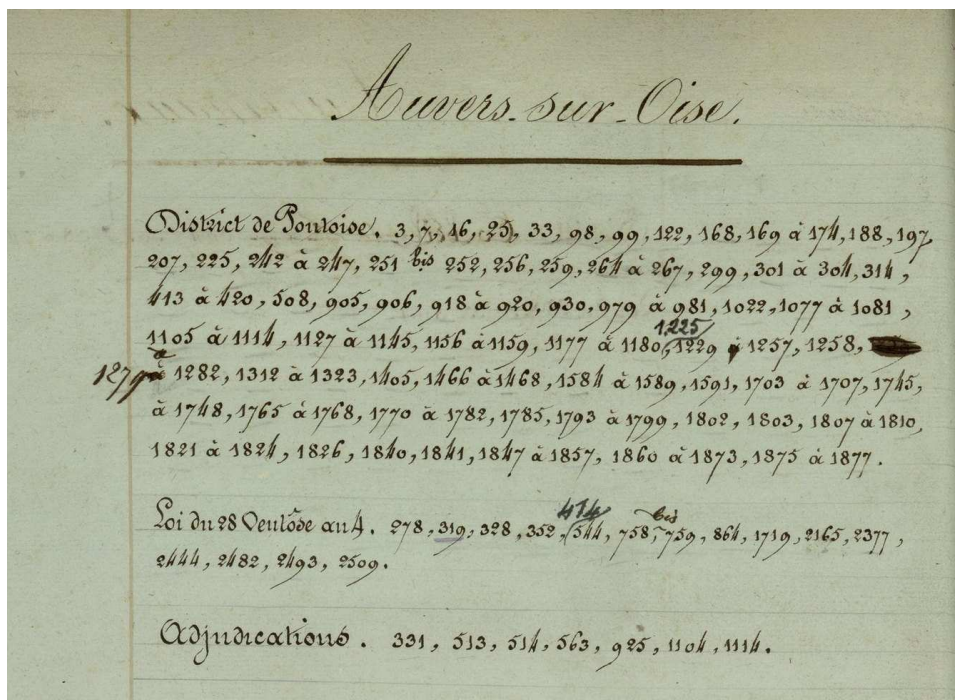 Auvers-sur-Oise.
District de Pontoise. 3, 7, 16, 25, 33, 98, 99, 122, 168, 169 à 174, 188, 197,
207, 225, 242 à 247, 251 bis 252, 256, 259, 264 à 267, 299, 301 à 304, 314,
413 à 420, 508, 905, 906, 918 à 920, 930, 979 à 981, 1022, 1077 à 1081,
1225
1105 à 1114, 1127 à 1145, 1156 à 1159, 1177 à 1180, 1229 à 1257, 1258,
1279 à 1282, 1312 à 1323, 1405, 1466 à 1468, 1584 à 1589, 1591, 1703 à 1707, 1745,
à 1748, 1765 à 1768, 1770 à 1782, 1785, 1793 à 1799, 1802, 1803, 1807 à 1810,
1821 à 1824, 1826, 1840, 1841, 1847 à 1857, 1860 à 1873, 1875 à 1877.
474 bis
Loi du 28 Ventôse an 4. 278, 319, 328, 352, 544, 758, 759, 864, 1719, 2165, 2377,
2444, 2482, 2493, 2509.
Adjudications. 331, 513, 514, 563, 925, 1104, 1114.